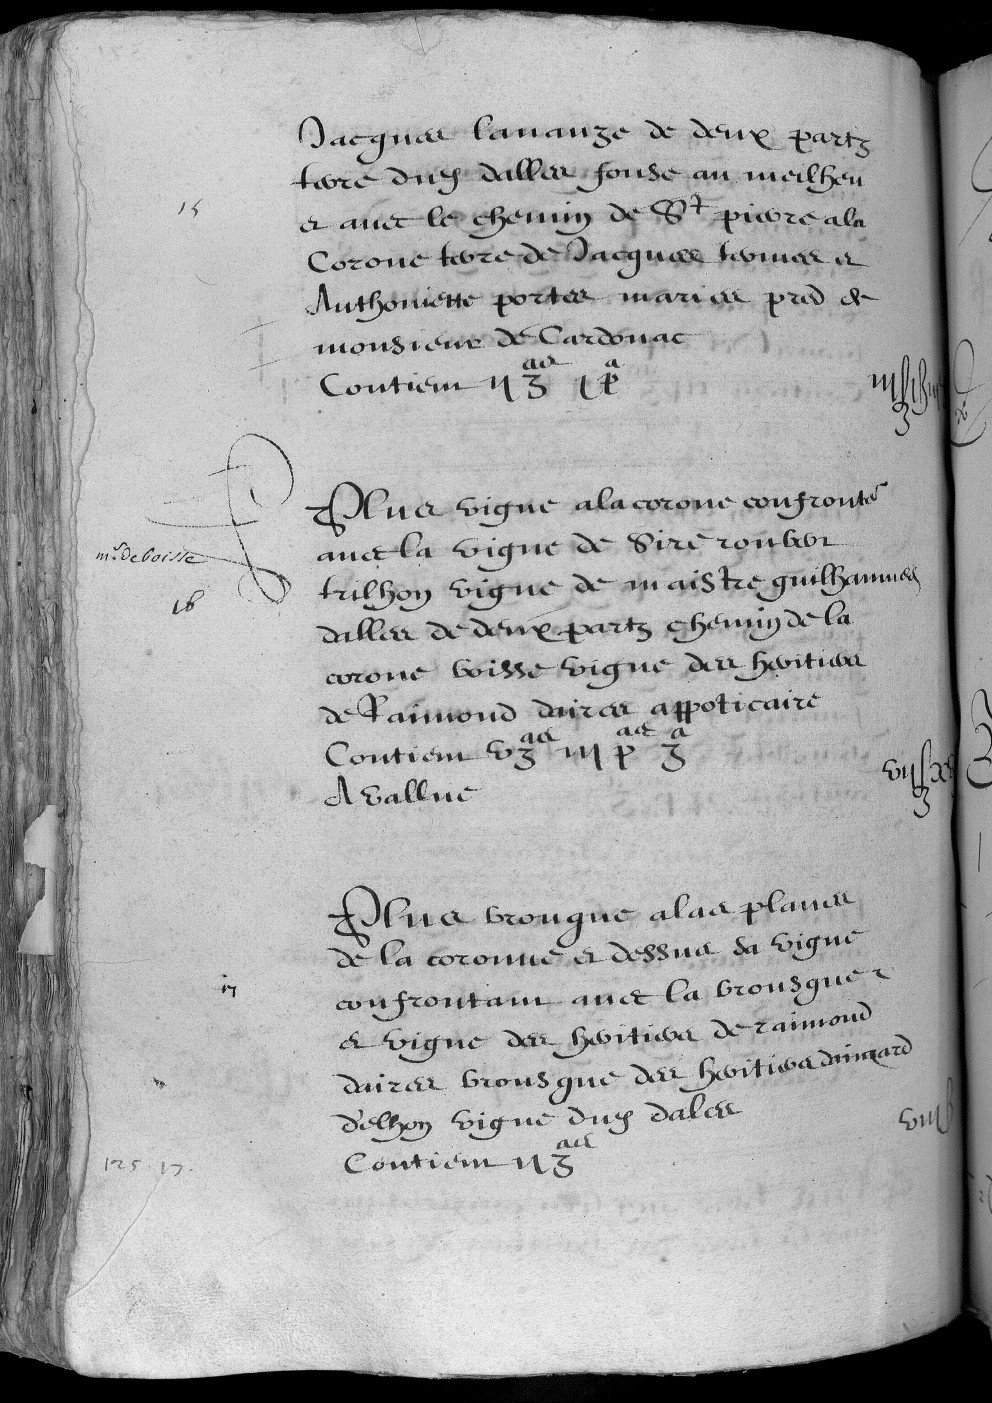 Jacques lavauze de deux partz
terre dud dalles fouse au meilheu
15
et avec le chemin de St pierre a la
Corone terre de Jacques termes et
Anthoniette portes maries pred de
monsieur de Cardonac
Contient ii ʒ aes i p a
Plus vigne a la corone confronte
avec la vigne de Sire roubert
mr de boisse
trilhon vigne de maistre guilhaumes
16
dalles de deux partz chemin de la
corone boisse vigne des heritiers
de Raimond daires appoticaire
Contient v ʒ aes iii p aes ʒ a
A vallue
Plus brougue a las planes
de la coronne et dessus sa vigne
17
confrontant avec la brousque
et vigne des heritiers de raimond
daires brousque des heritiers
delhon vigne dud dales
Contient ii ʒ aes
125. 17.